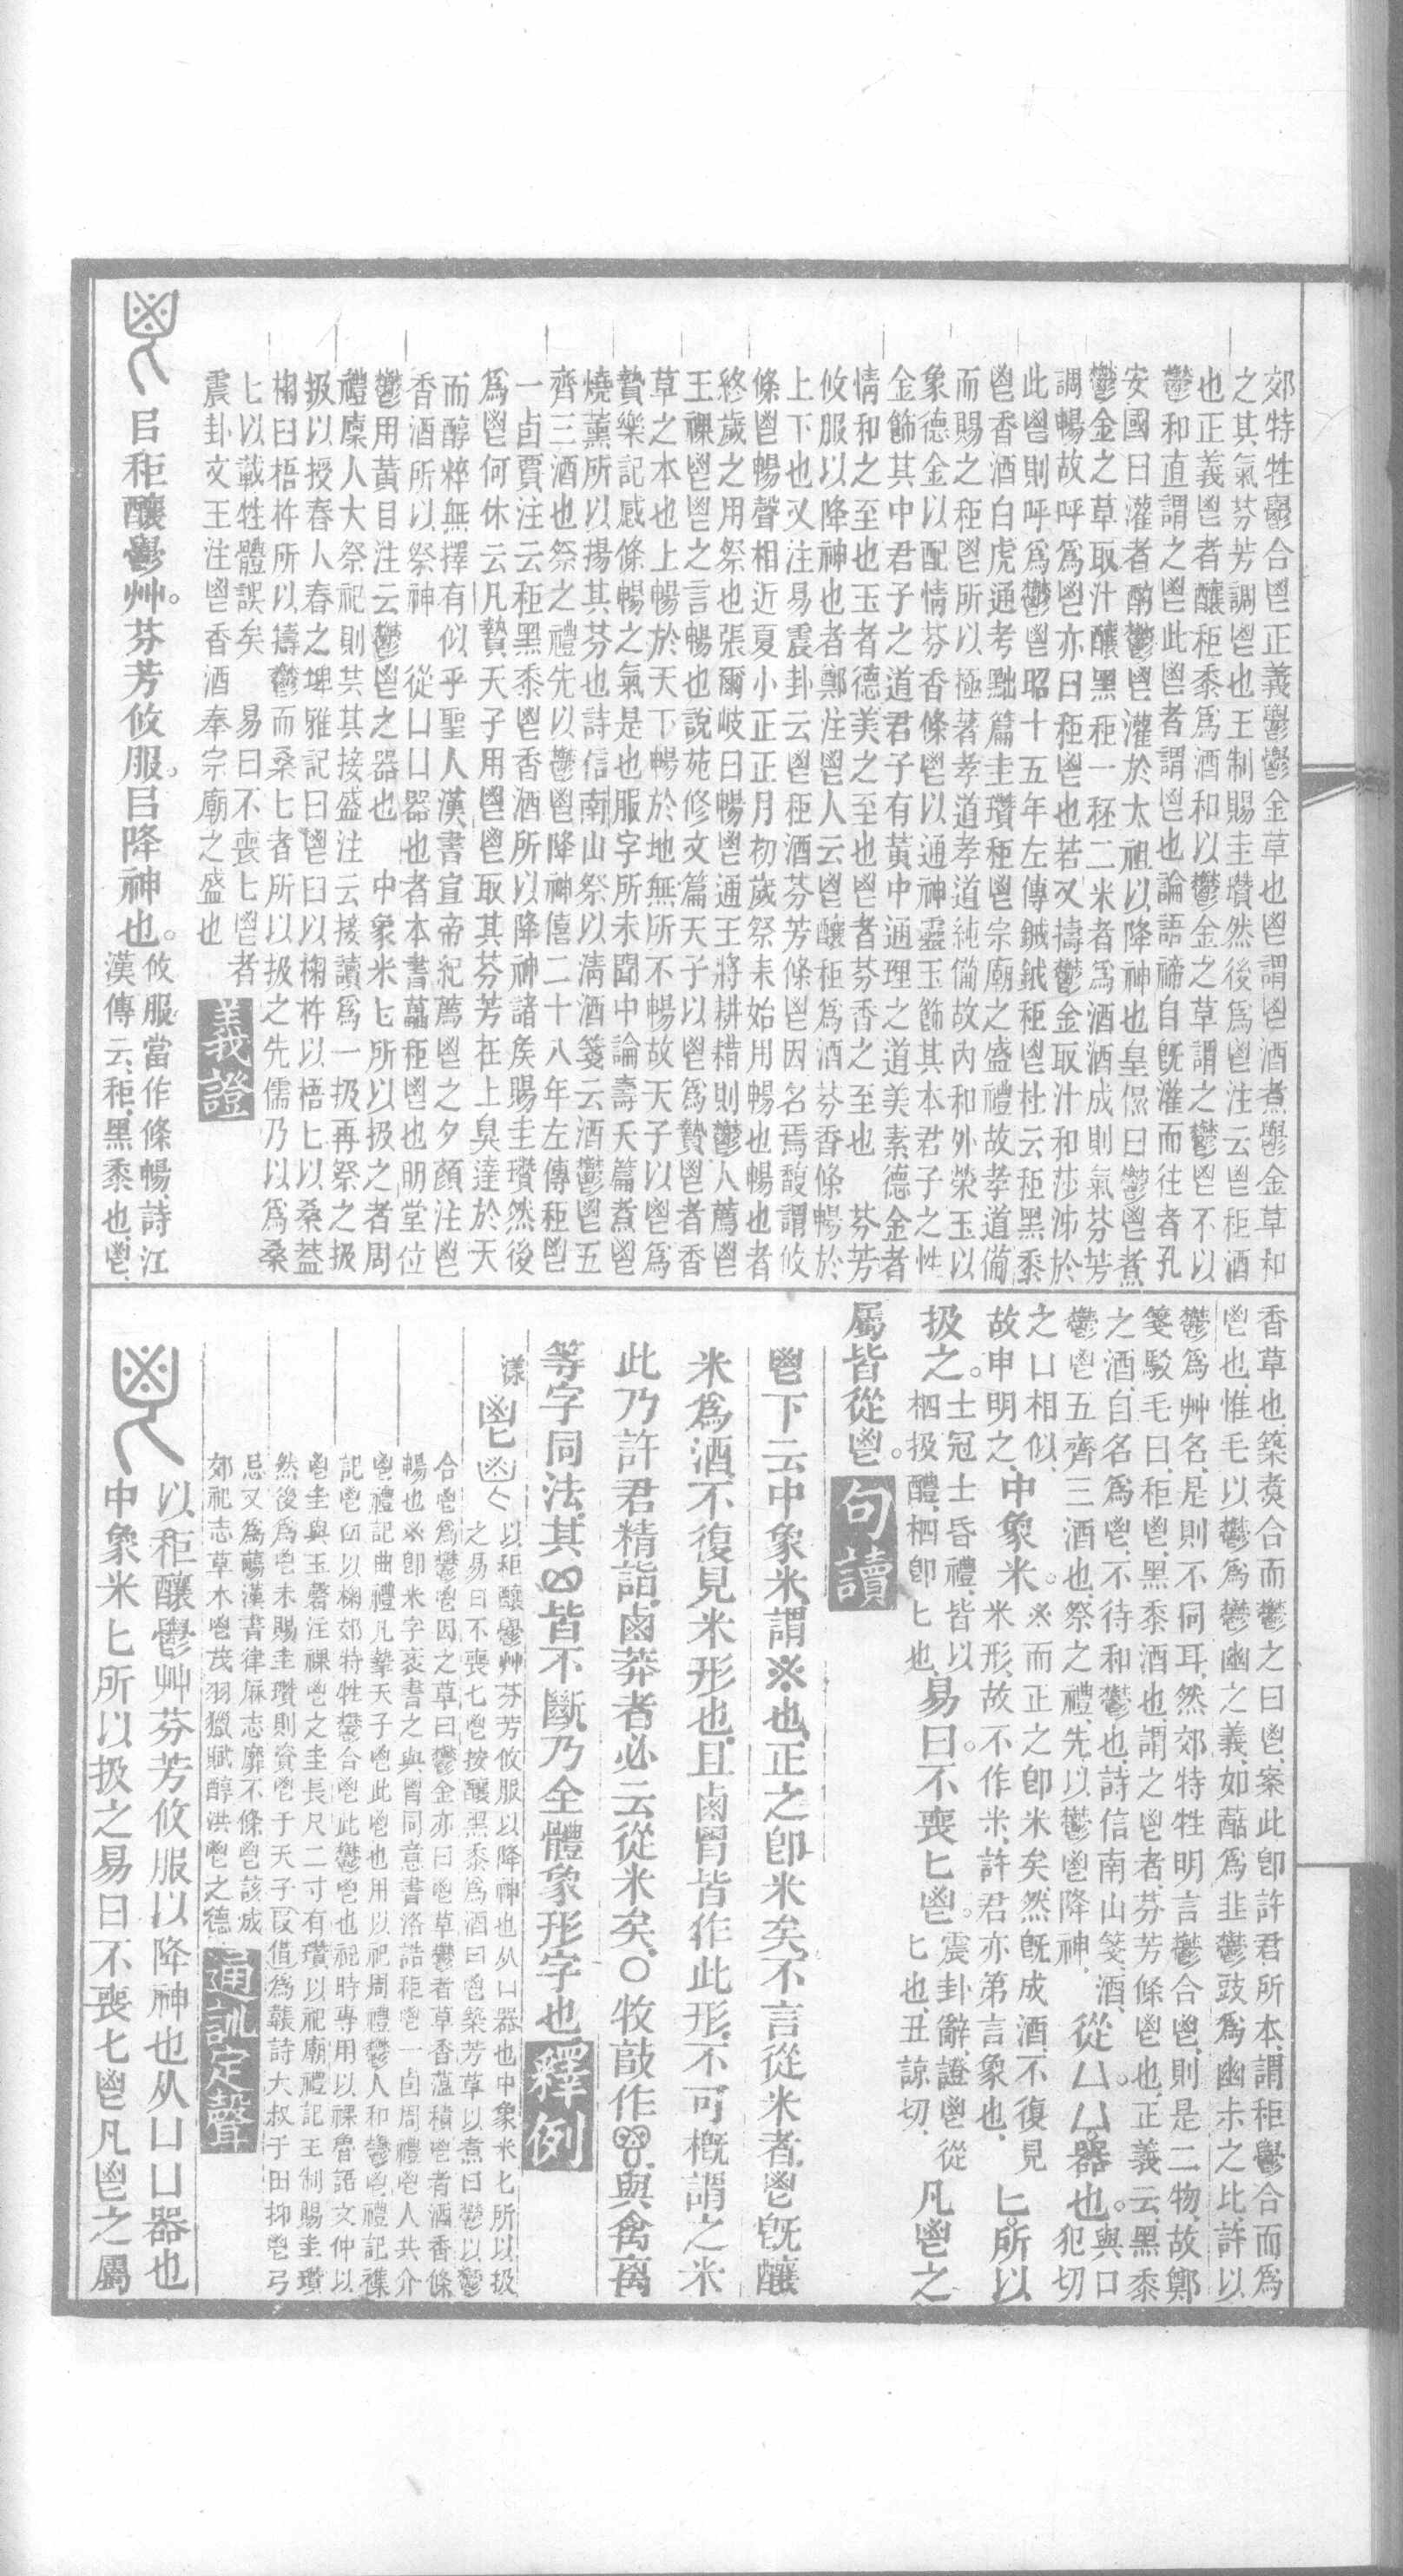 郊特牲鬱合鬯正義鬱鬱金草也鬯謂鬯酒煮鬱金草和
之其氣芬芳調鬯也王制賜圭瓚然後為鬯注云鬯秬酒
也正義鬯者釀秬黍為酒和以鬱金之草謂之鬱鬯不以
鬱和直謂之鬯此鬯者謂鬯也論語禘自旣灌而往者孔
安國曰灌者酌鬱鬯灌於太祖以降神也皇侃曰鬱鬯煮
鬱金之草取汁釀黑秬一秠二米者為酒酒成則氣芬芳
調暢故呼為鬯亦曰秬鬯也若又擣鬱金取汁和莎泲於
此鬯則呼為鬱鬯昭十五年左傳鏚鉞秬鬯杜云秬黑黍
鬯香酒白虎通考黜篇圭瓚秬鬯宗廟之盛禮故孝道備
而賜之秬鬯所以極著孝道孝道純備故內和外榮玉以
象德金以配情芬香條鬯以通神靈玉飾其本君子之性
金飾其中君子之道君子有黃中通理之道美素德金者
情和之至也玉者德美之至也鬯者芬香之至也　芬芳
攸服以降神也者鄭注鬯人云鬯釀秬為酒芬香條暢於
上下也又注易震卦云鬯秬酒芬芳條鬯因名焉馥謂攸
條鬯暢聲相近夏小正正月初歲祭耒始用暢也暢也者
終歲之用祭也張爾岐曰暢鬯通王將耕耤則鬱人薦鬯
王祼鬯鬯之言暢也說苑修文篇天子以鬯為贄鬯者香
草之本也上暢於天下暢於地無所不暢故天子以鬯為
贄樂記感條暢之氣是也服字所未聞中論壽夭篇煮鬯
燒薰所以揚其芬也詩信南山祭以清酒箋云酒鬱鬯五
齊三酒也祭之禮先以鬱鬯降神僖二十八年左傳秬鬯
一卣賈注云秬黑黍鬯香酒所以降神諸矦賜圭瓚然後
為鬯何休云凡贄天子用鬯鬯取其芬芳在上臭達於天
而醇粹無擇有似乎聖人漢書宣帝紀薦鬯之夕顏注鬯
香酒所以祭神　從凵凵器也者本書𤰈秬鬯也明堂位
鬱用黃目注云鬱鬯之器也　中象米匕所以扱之者周
禮廩人大祭祀則共其接盛注云接讀為一扱再祭之扱
扱以授舂人舂之埤雅記曰鬯臼以椈杵以梧匕以桑葢
椈臼梧杵所以擣鬱而桑匕者所以扱之先儒乃以為桑
匕以載牲體誤矣　易曰不喪匕鬯者
震卦文王注鬯香酒奉宗廟之盛也　義證
㠯秬釀鬱艸。芬芳攸服。㠯降神也。攸服當作條暢、詩江
漢傳云、秬、黑黍也、鬯、
香草也築煑合而鬱之曰鬯、案此卽許君所本、謂秬鬱合而為
鬯也、惟毛以鬱為鬱幽之義、如䪢為韭鬱豉為幽尗之比、許以
鬱為艸名、是則不同耳、然郊特牲明言鬱合鬯、則是二物、故鄭
箋駁毛曰、秬鬯、黑黍酒也、謂之鬯者、芬芳條鬯也、正義云、黑黍
之酒、自名為鬯、不待和鬱也、詩信南山箋、酒、
鬱鬯五齊三酒也、祭之禮、先以鬱鬯降神、從凵。凵。器也。與口犯切
之凵相似、
故申明之、中象米。※而正之卽米矣、然旣成酒、不復見
米形、故不作米、許君亦第言象也、匕。所以
扱之。士冠士昏禮、皆以
柶扱醴、柶卽匕也、易曰。不喪匕鬯。震卦辭、證鬯從
匕也、丑諒切、凡鬯之
屬皆從鬯。句讀
鬯下云中象米、謂※也、正之卽米矣、不言從米者、鬯旣釀
米為酒、不復見米形也、且鹵胃皆作此形、不可槪謂之米
此乃許君精詣、鹵莽者必云從米矣、○牧敼作與禽离
等字同法、其皆不斷、乃全體象形字也　釋例
漾　鬯
以秬釀鬱艸芬芳攸服以降神也从凵器也中象米匕所以扱
之易曰不喪匕鬯按釀黑黍為酒曰鬯築芳草以煮曰鬱以鬱
合鬯為鬱鬯因之草曰鬱金亦曰鬯草鬱者草香薀積鬯者酒香條
暢也※卽米字衺書之與胃同意書洛誥秬鬯一卣周禮鬯人共介
鬯禮記曲禮凡摯天子鬯此鬯也用以祀周禮鬱人和鬱鬯禮記襍
記鬯臼以椈郊特牲鬱合鬯此鬱鬯也祀時專用以祼魯語文仲以
鬯圭與玉磬注祼鬯之圭長尺二寸有瓚以祀廟禮記王制賜圭瓚
然後為鬯未賜圭瓚則資鬯于天子〔叚借〕為韔詩大叔于田抑鬯弓
忌又為𧀄漢書律厤志靡不條鬯該成
郊祀志草木鬯茂羽獵賦醇洪鬯之德　通訓定聲
以秬釀鬱艸芬芳攸服以降神也从凵凵器也
中象米匕所以扱之易曰不喪匕鬯凡鬯之屬